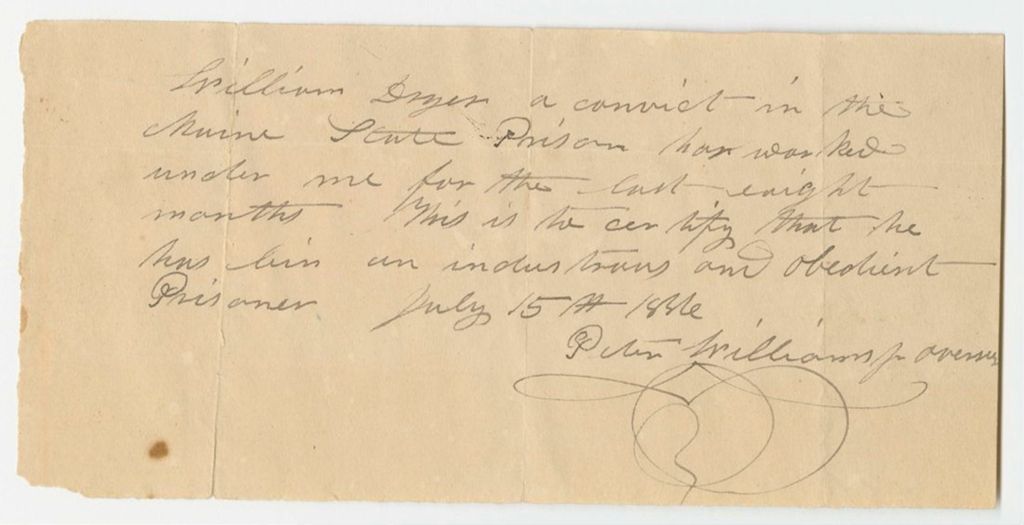 William Dyer a convict in the
Maine State Prison has worked
under me for the last eaight
months This is to certify that he
has bin an industrous and obedient
Prisoner July 15th
Peter Williams jr